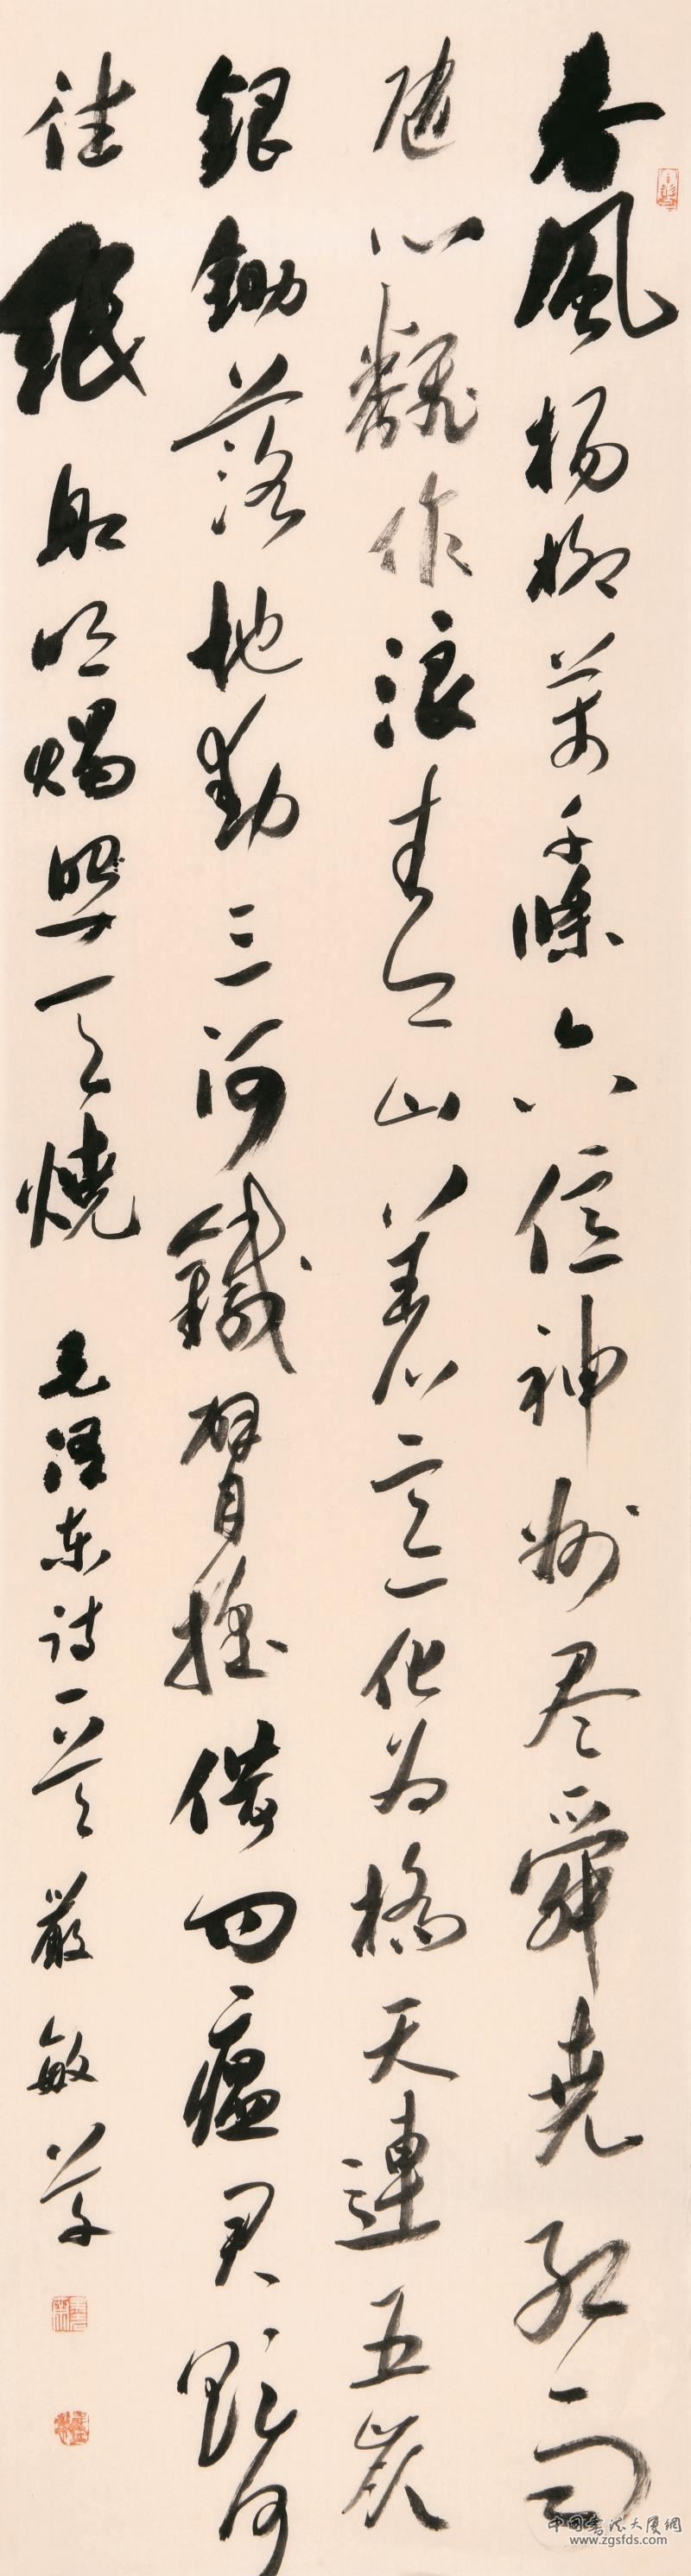 春風楊柳萬千條六億神州尽舜堯紅雨
随心翻作浪青山著意化为橋天連五嶺
銀鋤落地動三河鐵臂摇借问瘟君欲何
往紙船明燭照天燒 毛泽东诗一首 嚴敏草
中國書法大厦網
www.zgsfds.com